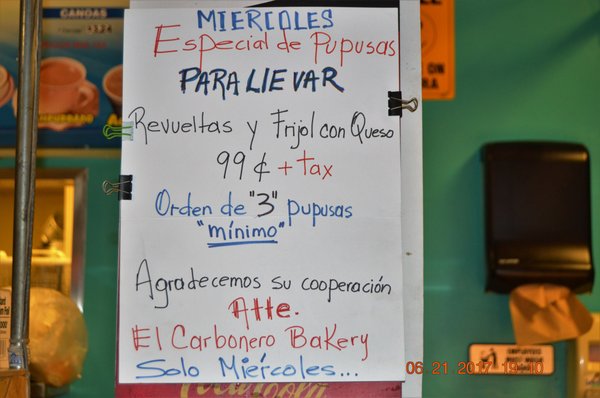 CANOAS
MIERCOLES
Especial de Pupusas
PARA LLEVAR
Revueltas y Frijol con Queso
99¢ + tax
Orden de "3" pupusas
"mínimo"
Agradecemos su cooperación
Atte.
El Carbonero Bakery
Solo Miércoles...
06.21.2017